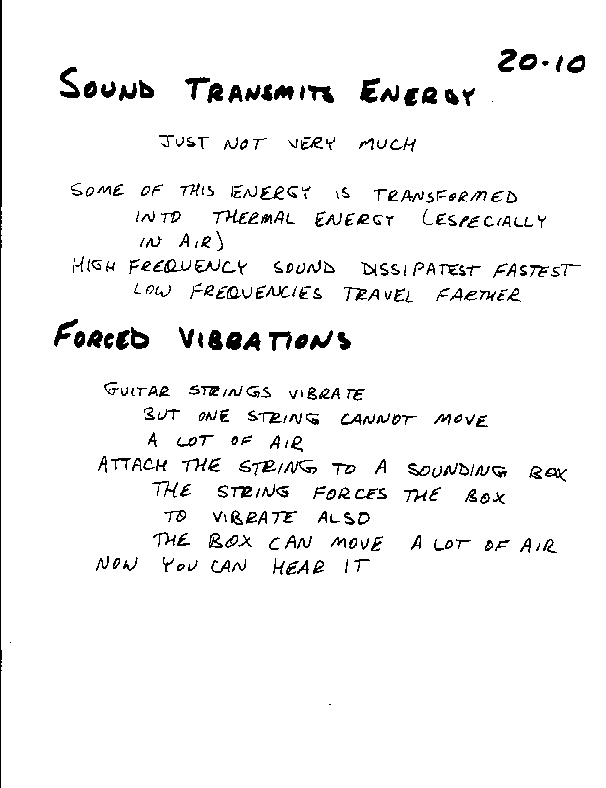 20-10
SOUND TRANSMITS ENERGY
JUST NOT VERY MUCH
SOME OF THIS ENERGY IS TRANSFORMED
INTO THERMAL ENERGY (ESPECIALLY
IN AIR)
HIGH FREQUENCY SOUND DISSIPATEST FASTEST
LOW FREQUENCIES TRAVEL FARTHER
FORCED VIBRATIONS
GUITAR STRINGS VIBRATE
BUT ONE STRING CANNOT MOVE
A LOT OF AIR
ATTACH THE STRING TO A SOUNDING BOX
THE STRING FORCES THE BOX
TO VIBRATE ALSO
THE BOX CAN MOVE A LOT OF AIR
NOW YOU CAN HEAR IT